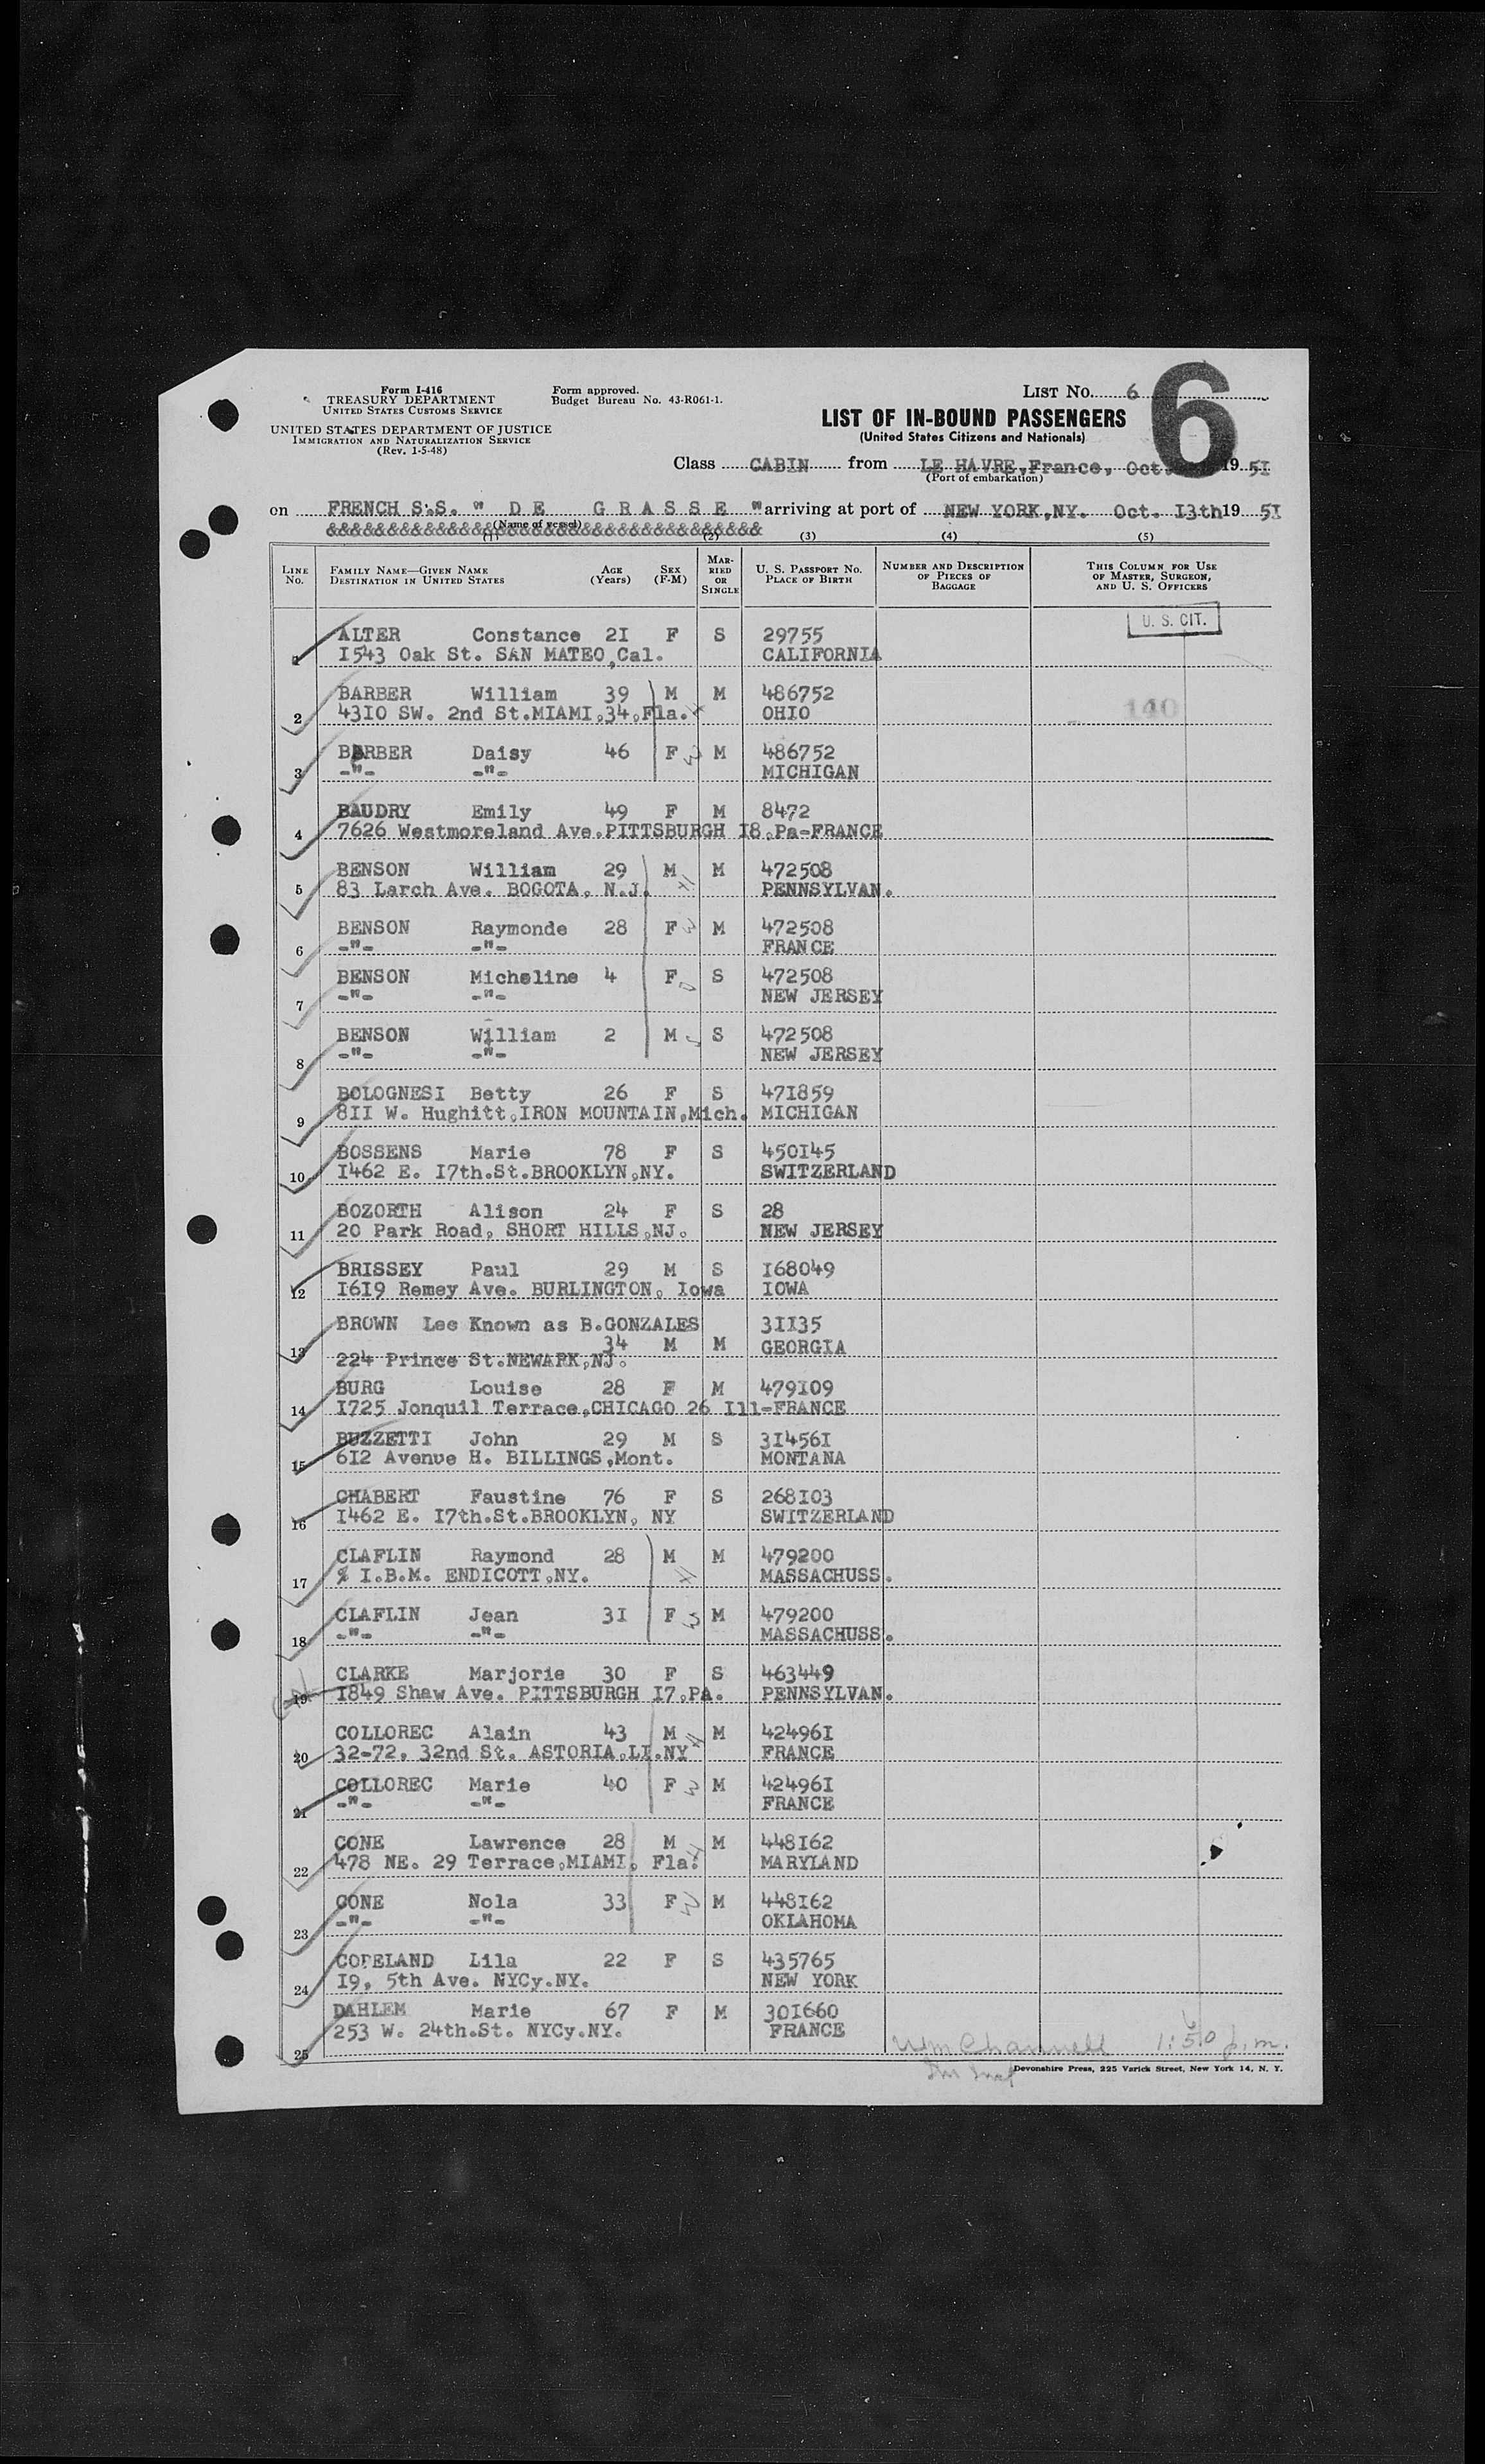 Form I-416
TREASURY DEPARTMENT
UNITED STATES CUSTOMS SERVICE
UNITED STATES DEPARTMENT OF JUSTICE
IMMIGRATION AND NATURALIZATION SERVICE
(Rev. 1-5-48)
Form approved.
Budget Bureau No. 43-R061-1.
LIST No. 6
6
LIST OF IN-BOUND PASSENGERS
(United States Citizens and Nationals)
Class CABIN from LE HAVRE, France, Oct. 19 5I
(Port of embarkation)
on FRENCH S.S. " D E G R A S S E " arriving at port of NEW YORK, NY. Oct. I3th 19 5I
&&&&&&&&&&&&&&&&&&&&&&&&&&&&&&&&&&&&
(Name of vessel)
(1) (2) (3) (4) (5)
LINE No. FAMILY NAME—GIVEN NAME DESTINATION IN UNITED STATES AGE (Years) SEX (F-M) MARRIED OR SINGLE U. S. PASSPORT No. PLACE OF BIRTH NUMBER AND DESCRIPTION OF PIECES OF BAGGAGE THIS COLUMN FOR USE OF MASTER, SURGEON, AND U. S. OFFICERS
U. S. CIT.
ALTER Constance 2I F S 29755
1 I543 Oak St. SAN MATEO, Cal. CALIFORNIA
BARBER William 39 M M 486752
2 43I0 SW. 2nd St. MIAMI, 34, Fla. OHIO 140
BARBER Daisy 46 F M 486752
3 -"- -"- MICHIGAN
BAUDRY Emily 49 F M 8472
4 7626 Westmoreland Ave, PITTSBURGH I8, Pa-FRANCE
BENSON William 29 M M 472508
5 83 Larch Ave. BOGOTA, N.J. PENNSYLVAN.
BENSON Raymonde 28 F M 472508
6 -"- -"- FRANCE
BENSON Micheline 4 F S 472508
7 -"- -"- NEW JERSEY
BENSON William 2 M S 472508
8 -"- -"- NEW JERSEY
BOLOGNESI Betty 26 F S 47I859
9 8II W. Hughitt, IRON MOUNTAIN, Mich. MICHIGAN
BOSSENS Marie 78 F S 450I45
10 I462 E. I7th.St. BROOKLYN, NY. SWITZERLAND
BOZORTH Alison 24 F S 28
11 20 Park Road, SHORT HILLS, NJ. NEW JERSEY
BRISSEY Paul 29 M S I68049
12 I6I9 Remey Ave. BURLINGTON, Iowa IOWA
BROWN Lee Known as B.GONZALES 3II35
13 34 M M GEORGIA
224 Prince St. NEWARK, NJ.
BURG Louise 28 F M 479I09
14 I725 Jonquil Terrace, CHICAGO 26 Ill-FRANCE
BUZZETTI John 29 M S 3I456I
15 6I2 Avenue H. BILLINGS, Mont. MONTANA
CHABERT Faustine 76 F S 268I03
16 I462 E. I7th.St. BROOKLYN, NY SWITZERLAND
CLAFLIN Raymond 28 M M 479200
17 % I.B.M. ENDICOTT, NY. MASSACHUSS.
CLAFLIN Jean 3I F M 479200
18 -"- -"- MASSACHUSS.
CLARKE Marjorie 30 F S 463449
19 I849 Shaw Ave. PITTSBURGH I7, PA. PENNSYLVAN.
COLLOREC Alain 43 M M 42496I
20 32-72, 32nd St. ASTORIA, LI. NY FRANCE
COLLOREC Marie 40 F M 42496I
21 -"- -"- FRANCE
CONE Lawrence 28 M M 448I62
22 478 NE. 29 Terrace, MIAMI, Fla. MARYLAND
CONE Nola 33 F M 448I62
23 -"- -"- OKLAHOMA
COPELAND Lila 22 F S 435765
24 I9, 5th Ave. NYCy.NY. NEW YORK
DAHLEM Marie 67 F M 30I660
253 W. 24th.St. NYCy.NY. FRANCE
25 Wm Channell 1:50 p.m.
Devonshire Press, 225 Varick Street, New York 14, N. Y.